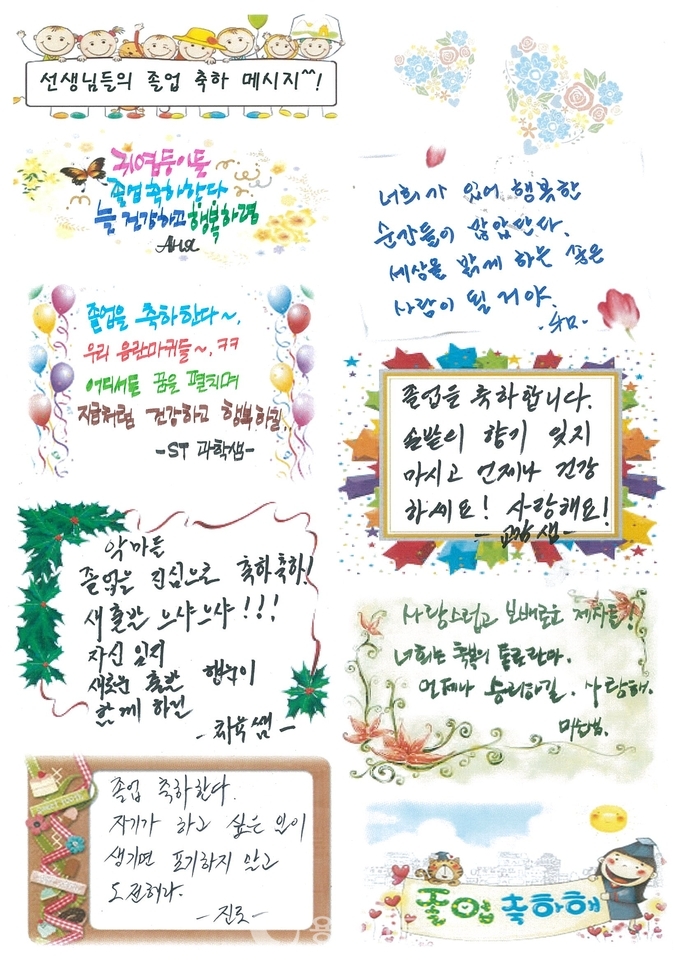 선생님들의 졸업 축하 메시지^^!
귀염둥이들
졸업 축하한다
늘 건강하고 행복하렴
Аня
너희가 있어 행복한
순간들이 많았단다.
세상을 밝게 하는 좋은
사람이 될 거야.
졸업을 축하한다~.
우리 음란마귀들~. ㅋㅋ
어디서든 꿈을 펼치며
지금처럼 건강하고 행복하길..
-ST 과학샘-
졸업을 축하합니다.
솔밭의 향기 잊지
마시고 언제나 건강
하세요! 사랑해요!
-교장 샘-
악마들
졸업을 진심으로 축하축하!
새출발 으샤으샤!!!
자신 있게
새로운 출발 행운이
함께 하길
-체육쌤-
사랑스럽고 보배로운 제자들!
너희는 축복의 통로란다.
언제나 승리하길. 사랑해.
미술쌤.
졸업 축하한다.
자기가 하고 싶은 일이
생기면 포기하지 말고
도전해라.
-진로-
졸업 축하해